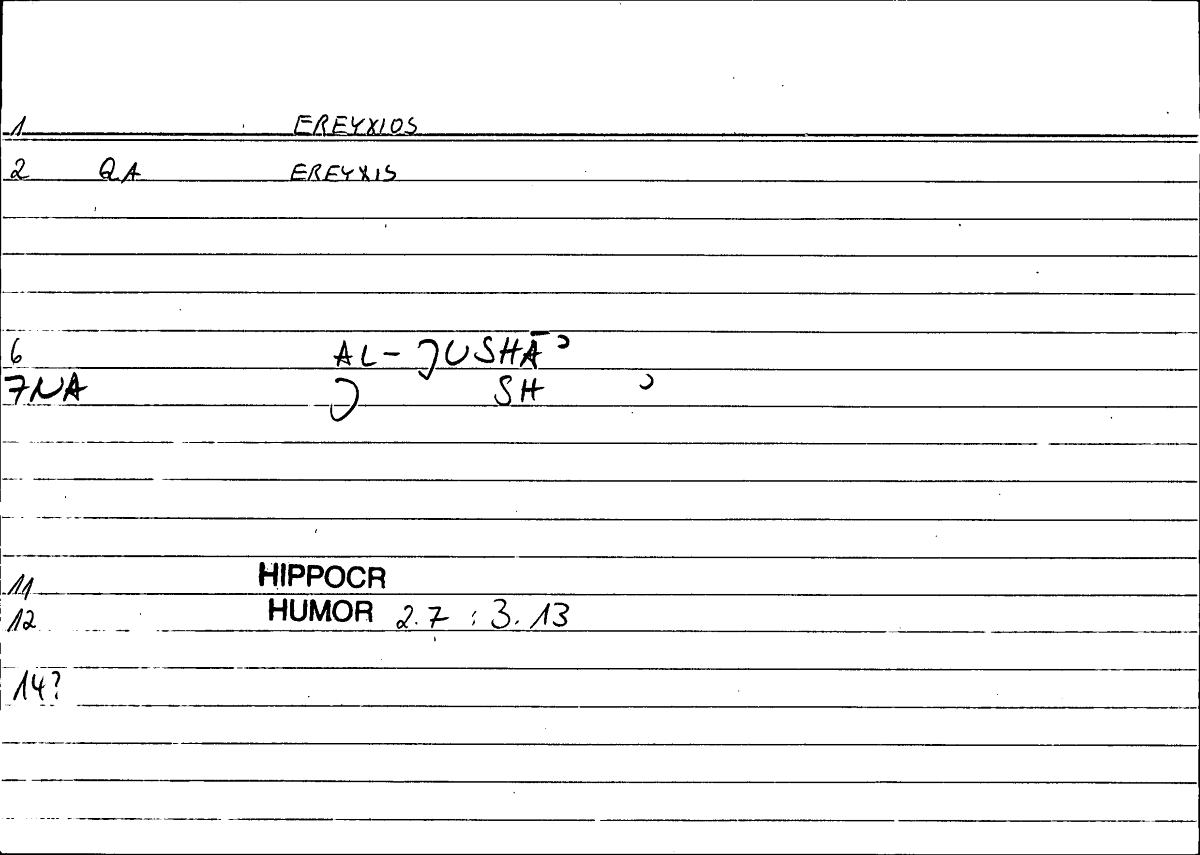 1 EREYXIOS
2 QA EREYXIS
6 AL-JUSHĀʾ
7NA J SH ʾ
11 HIPPOCR
12 HUMOR 2.7 : 3.13
14?